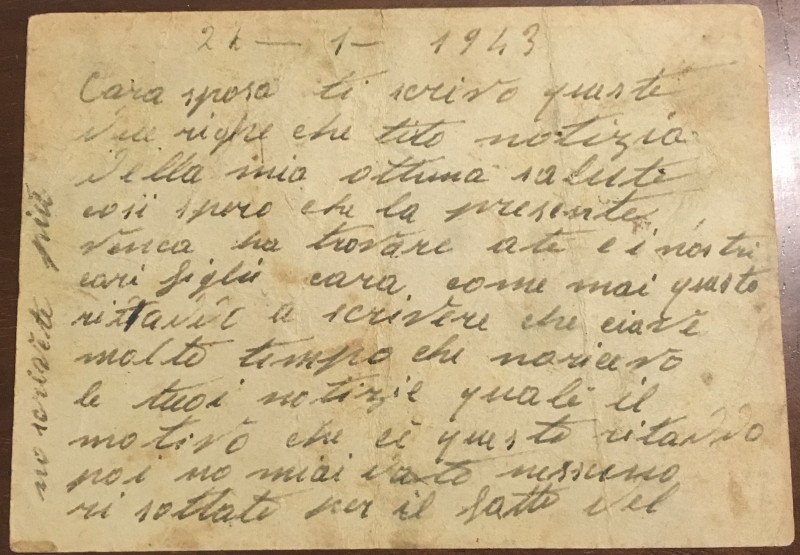 21 - 1 - 1943
Cara sposa ti scrivo queste
due righe che tito notizia
della mia ottima salute
cosi spero che la presente
venca ha trovare ate e i nostri
cari figlii cara come mai questo
ritardo a scrivere che ciave
molto tempo che noricevo
le tuoi notizie quale il
motivo che cè questo ritardo
poi no miai dato nessuno
risottato per il fatto del
no scrivete più